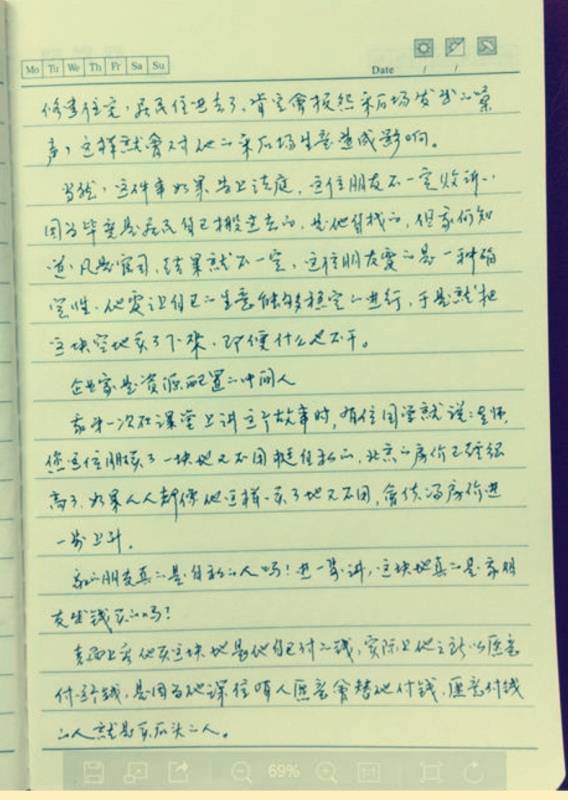 Mo Tu We Th Fr Sa Su
Date / /
修专住宅，居民住进去了，肯定会抱怨采石场发出的噪
声，这样就会对他的采石场生意造成影响。
当然，这件事如果告上法庭，这位朋友不一定败诉，
因为毕竟是居民自己搬过去的，是他自找的，但我们知
道，凡是官司，结果就不一定，这位朋友要的是一种确
定性，他要让自己的生意能够稳定的进行，于是就把
这块空地买了下来，即便什么也不干。
企业家是资源配置的中间人
我第一次在课堂上讲这个故事时，有位同学就说：老师，
您这位朋友买了一块地又不用挺自私的，北京的房价已经很
高了，如果人人都像他这样，买了地又不用，会使得房价进
一步上升。
我的朋友真的是自私的人吗？进一步讲，这块地真的是我朋
友出钱买的吗？
表面上看他买这块地是他自己付的钱，实际上他之所以愿意
付这个钱，是因为他深信有人愿意会替他付钱，愿意付钱
的人就是买石头的人。
69%
1:1